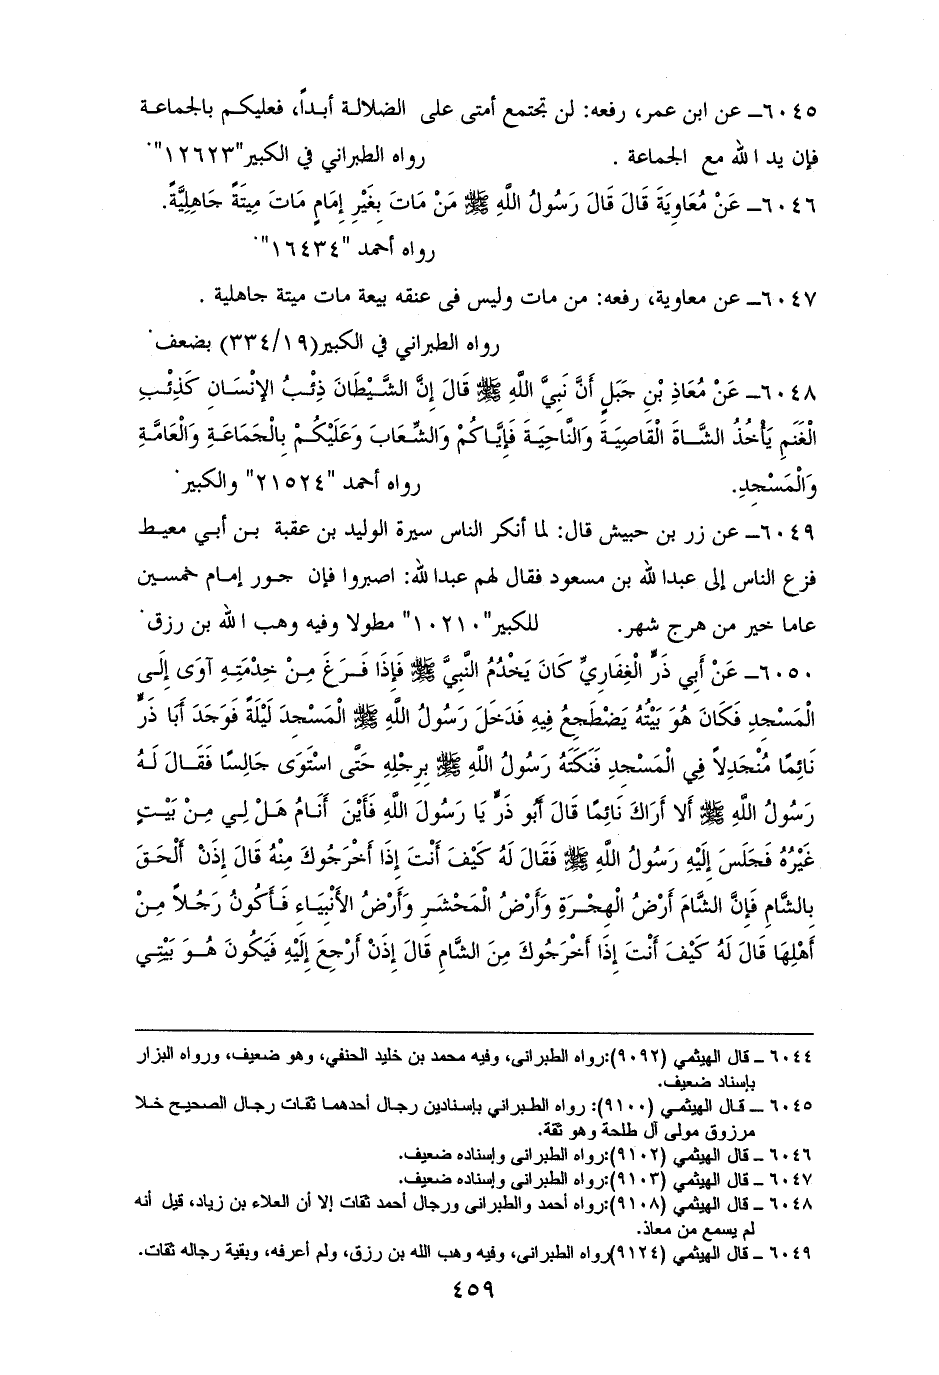 ٦٠٤٥ـ عن ابن عمر، رفعه: لن تجتمع أمتى على الضلالة أبداً، فعليكم بالجماعة
فإن يد الله مع الجماعة . رواه الطبراني في الكبير"١٢٦٢٣".
٦٠٤٦ـ عَنْ مُعَاوِيَةَ قَالَ قَالَ رَسُولُ اللَّهِ ﷺ مَنْ مَاتَ بِغَيْرِ إِمَامٍ مَاتَ مِيتَةً جَاهِلِيَّةً.
رواه أحمد "١٦٤٣٤".
٦٠٤٧ـ عن معاوية، رفعه: من مات وليس فى عنقه بيعة مات ميتة جاهلية .
رواه الطبراني في الكبير(٣٣٤/١٩) بضعف.
٦٠٤٨ـ عَنْ مُعَاذِ بْنِ جَبَلٍ أَنَّ نَبِيَّ اللَّهِ ﷺ قَالَ إِنَّ الشَّيْطَانَ ذِئْبُ الإِنْسَانِ كَذِئْبِ
الْغَنَمِ يَأْخُذُ الشَّاةَ الْقَاصِيَةَ وَالنَّاحِيَةَ فَإِيَّاكُمْ وَالشِّعَابَ وَعَلَيْكُمْ بِالْجَمَاعَةِ وَالْعَامَّةِ
وَالْمَسْجِدِ. رواه أحمد "٢١٥٢٤" والكبير.
٦٠٤٩ـ عن زر بن حبيش قال: لما أنكر الناس سيرة الوليد بن عقبة بن أبي معيط
فزع الناس إلى عبدالله بن مسعود فقال لهم عبدالله: اصبروا فإن جور إمام خمسين
عاما خير من هرج شهر. للكبير"١٠٢١٠" مطولا وفيه وهب الله بن رزق.
٦٠٥٠ـ عَنْ أَبِي ذَرٍّ الْغِفَارِيِّ كَانَ يَخْدُمُ النَّبِيَّ ﷺ فَإِذَا فَرَغَ مِنْ خِدْمَتِهِ آوَى إِلَى
الْمَسْجِدِ فَكَانَ هُوَ بَيْتُهُ يَضْطَجِعُ فِيهِ فَدَخَلَ رَسُولُ اللَّهِ ﷺ الْمَسْجِدَ لَيْلَةً فَوَجَدَ أَبَا ذَرٍّ
نَائِمًا مُنْجَدِلاً فِي الْمَسْجِدِ فَنَكَتَهُ رَسُولُ اللَّهِ ﷺ بِرِجْلِهِ حَتَّى اسْتَوَى جَالِسًا فَقَالَ لَهُ
رَسُولُ اللَّهِ ﷺ أَلا أَرَاكَ نَائِمًا قَالَ أَبُو ذَرٍّ يَا رَسُولَ اللَّهِ فَأَيْنَ أَنَامُ هَلْ لِي مِنْ بَيْتٍ
غَيْرُهُ فَجَلَسَ إِلَيْهِ رَسُولُ اللَّهِ ﷺ فَقَالَ لَهُ كَيْفَ أَنْتَ إِذَا أَخْرَجُوكَ مِنْهُ قَالَ إِذَنْ أَلْحَقَ
بِالشَّامِ فَإِنَّ الشَّامَ أَرْضُ الْهِجْرَةِ وَأَرْضُ الْمَحْشَرِ وَأَرْضُ الأَنْبِيَاءِ فَأَكُونُ رَجُلاً مِنْ
أَهْلِهَا قَالَ لَهُ كَيْفَ أَنْتَ إِذَا أَخْرَجُوكَ مِنَ الشَّامِ قَالَ إِذَنْ أَرْجِعَ إِلَيْهِ فَيَكُونَ هُوَ بَيْتِي
٦٠٤٤ ـ قال الهيثمي (٩٠٩٢):رواه الطبرانى، وفيه محمد بن خليد الحنفي، وهو ضعيف، ورواه البزار
بإسناد ضعيف.
٦٠٤٥ ـ قال الهيثمي (٩١٠٠): رواه الطبراني بإسنادين رجال أحدهما ثقات رجال الصحيح خلا
مرزوق مولى آل طلحة وهو ثقة.
٦٠٤٦ ـ قال الهيثمي (٩١٠٢):رواه الطبرانى وإسناده ضعيف.
٦٠٤٧ ـ قال الهيثمي (٩١٠٣):رواه الطبرانى وإسناده ضعيف.
٦٠٤٨ ـ قال الهيثمي (٩١٠٨):رواه أحمد والطبرانى ورجال أحمد ثقات إلا أن العلاء بن زياد، قيل أنه
لم يسمع من معاذ.
٦٠٤٩ ـ قال الهيثمي (٩١٢٤)رواه الطبرانى، وفيه وهب الله بن رزق، ولم أعرفه، وبقية رجاله ثقات.
٤٥٩